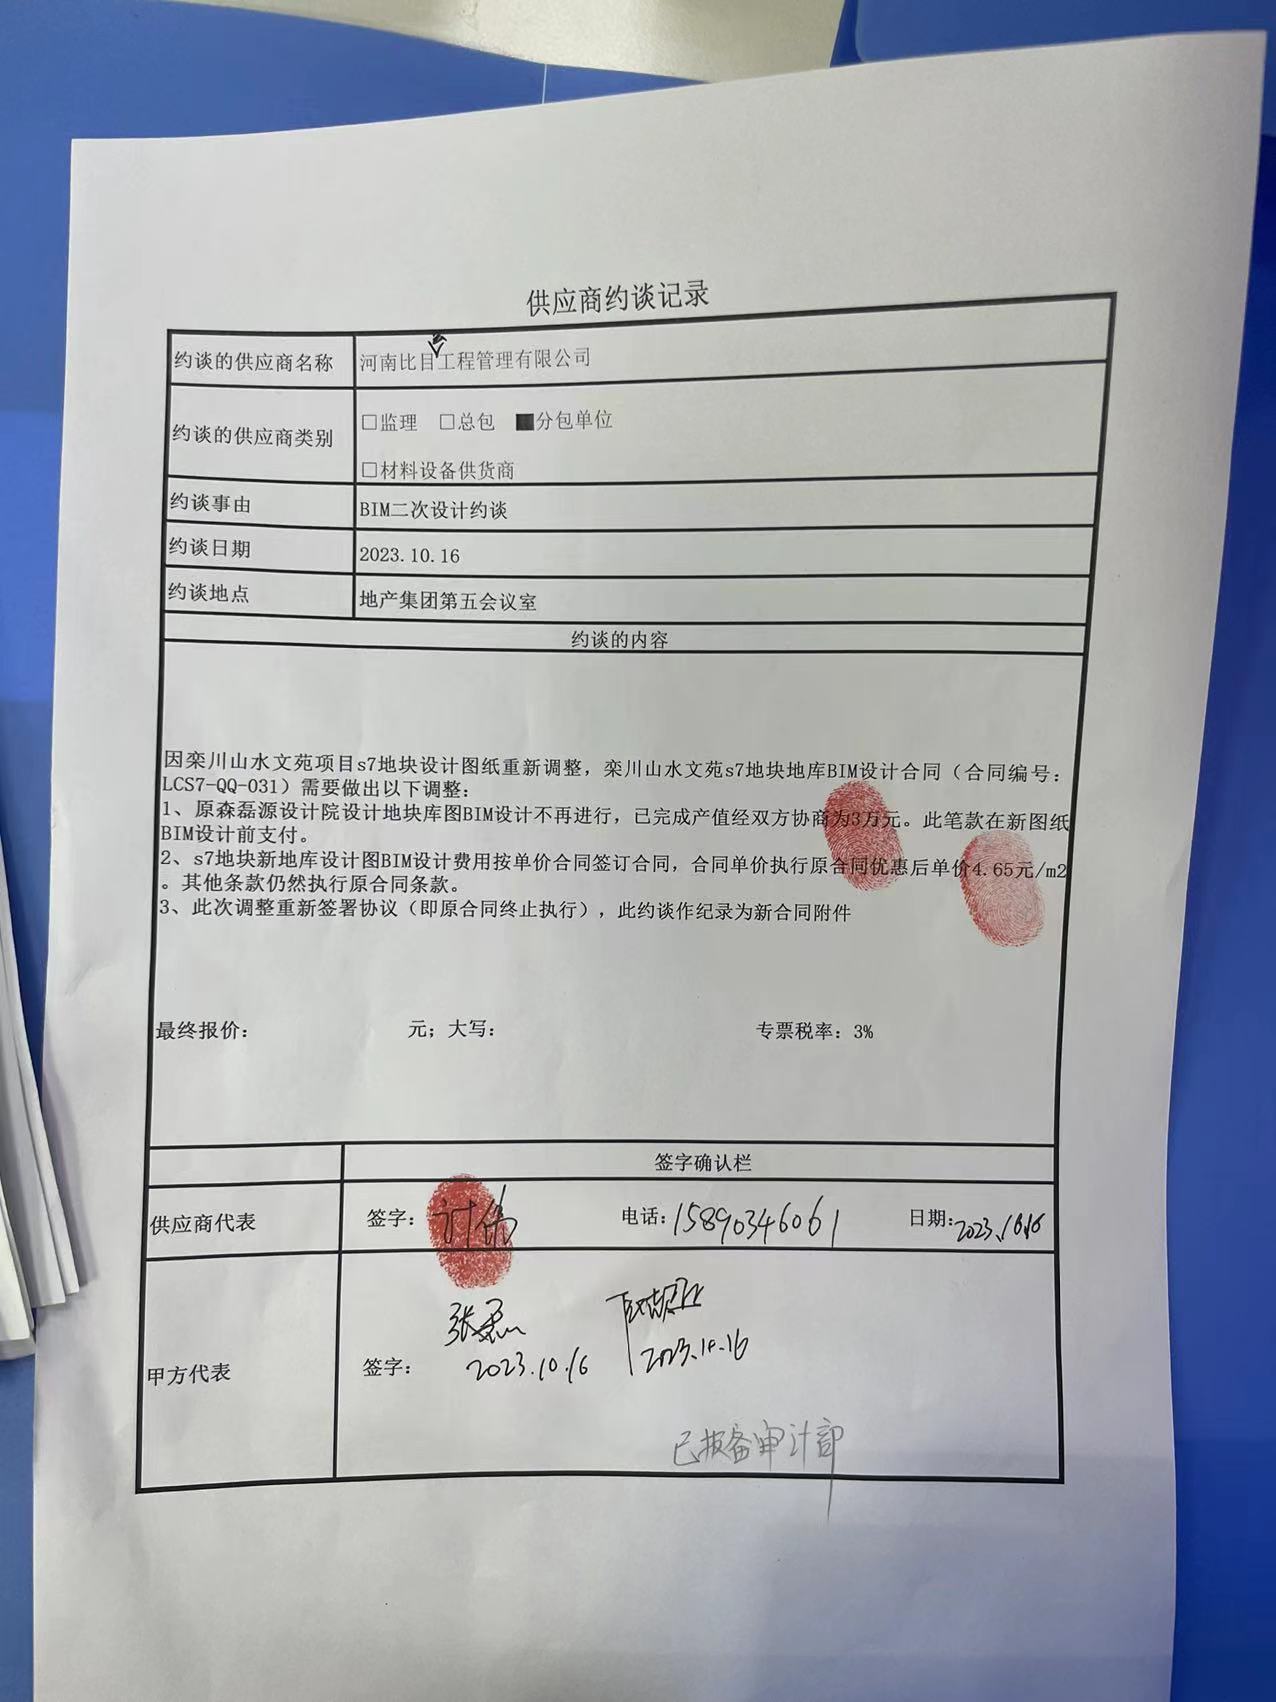 供应商约谈记录
约谈的供应商名称 河南比目工程管理有限公司
约谈的供应商类别 □监理 □总包 ■分包单位
□材料设备供货商
约谈事由 BIM二次设计约谈
约谈日期 2023.10.16
约谈地点 地产集团第五会议室
约谈的内容
因栾川山水文苑项目s7地块设计图纸重新调整，栾川山水文苑s7地块地库BIM设计合同（合同编号：
LCS7-QQ-031）需要做出以下调整：
1、原森磊源设计院设计地块库图BIM设计不再进行，已完成产值经双方协商为3万元。此笔款在新图纸
BIM设计前支付。
2、s7地块新地库设计图BIM设计费用按单价合同签订合同，合同单价执行原合同优惠后单价4.65元/m2
。其他条款仍然执行原合同条款。
3、此次调整重新签署协议（即原合同终止执行），此约谈作纪录为新合同附件
最终报价： 元；大写： 专票税率：3%
签字确认栏
供应商代表 签字： 电话：15890346061 日期：2023.10.16
甲方代表 签字： 2023.10.16 2023.10.16
已报备审计部